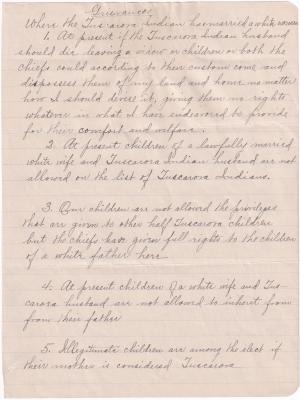 Grievances
Where the Tuscarora Indian has married a white woman
1. At present if the Tuscarora Indian husband
should die leaving a widow or children or both the
chiefs could according to their custom come and
dispossess them of my land and home no matter
how I should devise it, giving them no rights
whatever in what I have endeavored to provide
for their comfort and welfare.
2. At present children of a lawfully married
white wife and Tuscarora Indian husband are not
allowed on the list of Tuscarora Indians.
3. Our children are not allowed the privileges
that are given to other half Tuscarora children
but the chiefs have given full rights to the children
of a white father here.
4. At present children of a white wife and Tus-
carora husband are not allowed to inherit from
from their father
5. Illegitimate children are among the elect if
their mother is considered Tuscarora